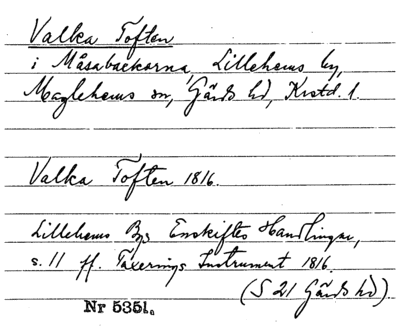 Valka Toften
i Måsabackarna, Lillehems by,
Maglehems sn, Gärds hd, Krstd. l.
Valka Toften 1816.
Lillehems Bys Enskiftes Handlingar,
s. 11 ff. Taxerings Instrument 1816.
(S 21 Gärds hd).
Nr 5351.